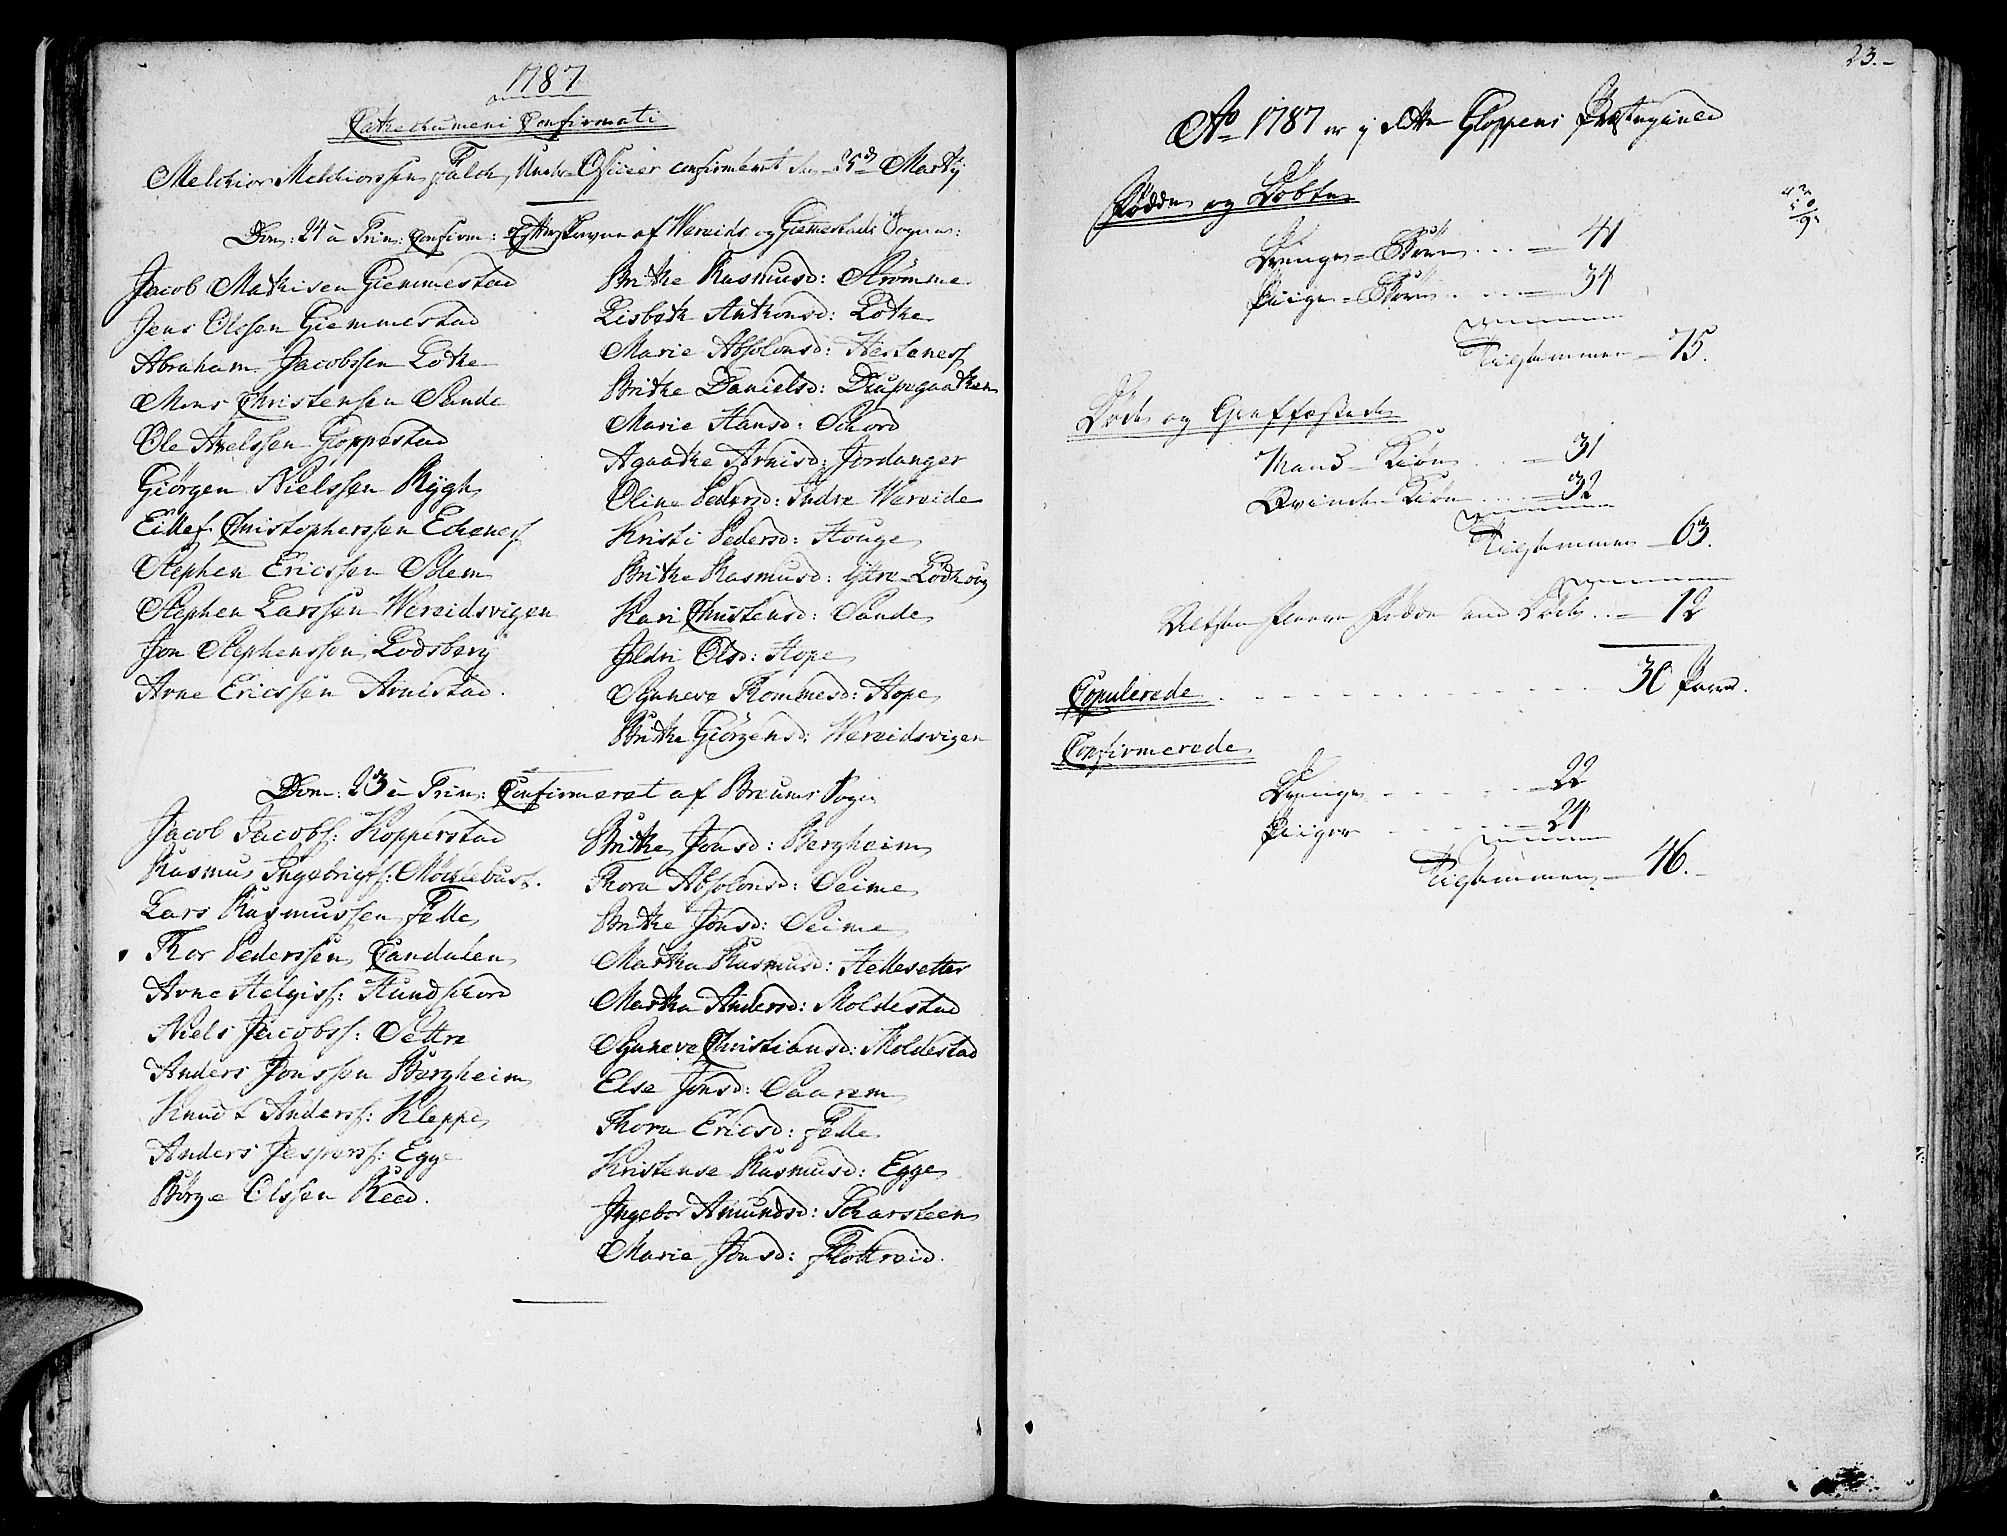 1787
Cathechumeni Confirmati
Melchior Melchiorssen Falch, Under Officier confirmeret den 25de Martij
Dom: 24 à Trin: Confirm: efterskrevne af Wereids og Giemmestads Sogner:
Jacob Mathisen Giemmestad
Jens Olssen Giemmestad
Abraham Jacobssen Lothe
Mons Christensen Sande
Ole Axelssen Gloppestad
Giörgen Nielssen Rygh
Eillef Christopherssen Echenes
Stephen Ericssen Solem
Stephen Larssen Wereidsvigen
Jon Stephenssen Lodsberg
Arne Ericssen Arnistad.
Brithe Rasmusd: Strömme
Lisbeth Anthonsd: Lothe
Marie Absolonsd: Hestenes
Brithe Danielsd: Diupegaathen
Marie Hansd: Schord
Agaathe Arnisd: Jordanger
Oline Pedersd: Indre Wereide
Kristi Pedersd: Houge
Brithe Rasmusd: Ytre Lödhoug
Kari Christensd: Sande
Jldri Olsd: Hope
Syneve Rommesd: Hope
Brithe Giörgensd: Wereidsvigen
Dom: 23 à Trin: Confirmeret af Breums Sogn
Jacob Jacobs: Kopperstad
Rasmus Ingebrigts: Möchlebust.
Lars Rasmussen Fölle
Thor Pederssen Sandalen
Arne Helgiss: Hundschord
Niels Jacobss: Settre
Anders Jonssen Bergheim
Knud Anderss: Kleppe
Anders Jespers: Egge
Börge Olssen Reed.
Brithe Jonsd: Bergheim
Thora Absolonsd: Seime
Brithe Jonsd: Seime
Martha Rasmusd: Hellesetter
Martha Andersd: Moldestad
Syneve Christiansd: Moldestad
Else Jonsd: Saarem
Thora Ericsd: Fölle
Kristense Rasmusd: Egge
Ingebor Amundsd: Scharsteen
Marie Jonsd: Flöttreid.
23.-
Ao 1787 er i dette Gloppens Præstegield
Födde og Döbte
Drenge-Börn . . . - 41
Piige-Börn . . . - 34
Tilsammen - 75.
Döde og Graffæstede
Mand-Kiön . . - 31
Qvinde-Kiön . . . - 32
Tilsammen - 63.
Altsaa fleere födde end Döde . . - 12
Copulerede - - - - - - 30 Parr.
Confirmerede
Drenge - - - - 22
Piiger - - - - 24
Tilsammen - 46.-